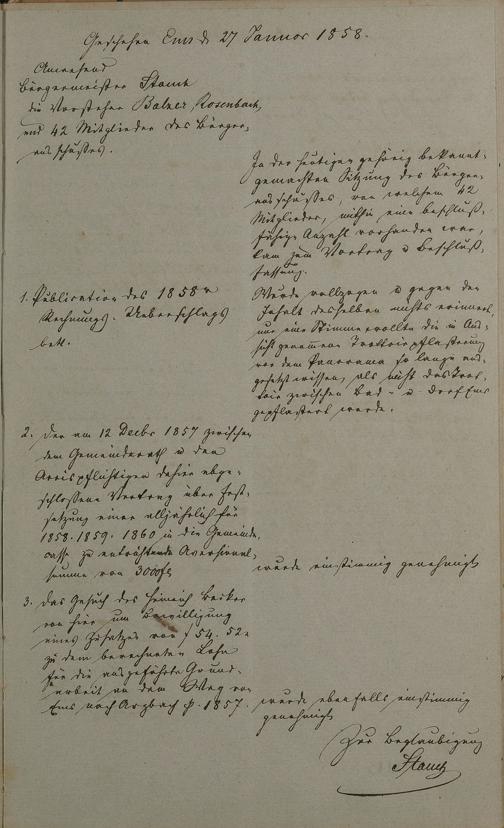 Geschehen Ems d. 27 Januar 1858.
Anwesend
Bürgermeister Stamm
die Vorsteher Balzer, Rosenbach,
und 42 Mitglieder des Bürger-
ausschusses.
In der heutigen gehörig bekannt-
gemachten Sitzung des Bürger-
ausschusses, von welchem 42
Mitglieder, mithin eine beschluß-
fähige Anzahl vorhanden war,
kam zum Vortrag u Beschluß-
fassung.
1. Publication des 1858r
Rechnungs-Ueberschlags
betr.
Wurde vollzogen u gegen den
Inhalt desselben nichts erinnert,
nur eine Stimme wollte die in Aus-
sicht genommene Trottoirpflasterung
vor dem Panorama so lange aus-
gesetzt wissen, als nicht das Trot-
toir zwischen Bad- u. Dorf Ems
gepflastert werde.
2. Der am 12 Decbr 1857 zwischen
dem Gemeinderath u den
Accispflichtigen dahier abge-
schlossene Vertrag über Fest-
setzung einer alljährlich für
1858. 1859. 1860 in die Gemeinde-
casse zu entrichtende Aversional-
summe von 3000 fl
wurde einstimmig genehmigt
3. Das Gesuch des Heinrich Becker
von hier um Bewilligung
eines Zusatzes von f 54. 52
zu dem berechneten Lohn
für die ausgeführte Grund-
arbeit an dem Weg von
Ems nach Arzbach p. 1857.
wurde ebenfalls einstimmig
genehmigt
Zur Beglaubigung